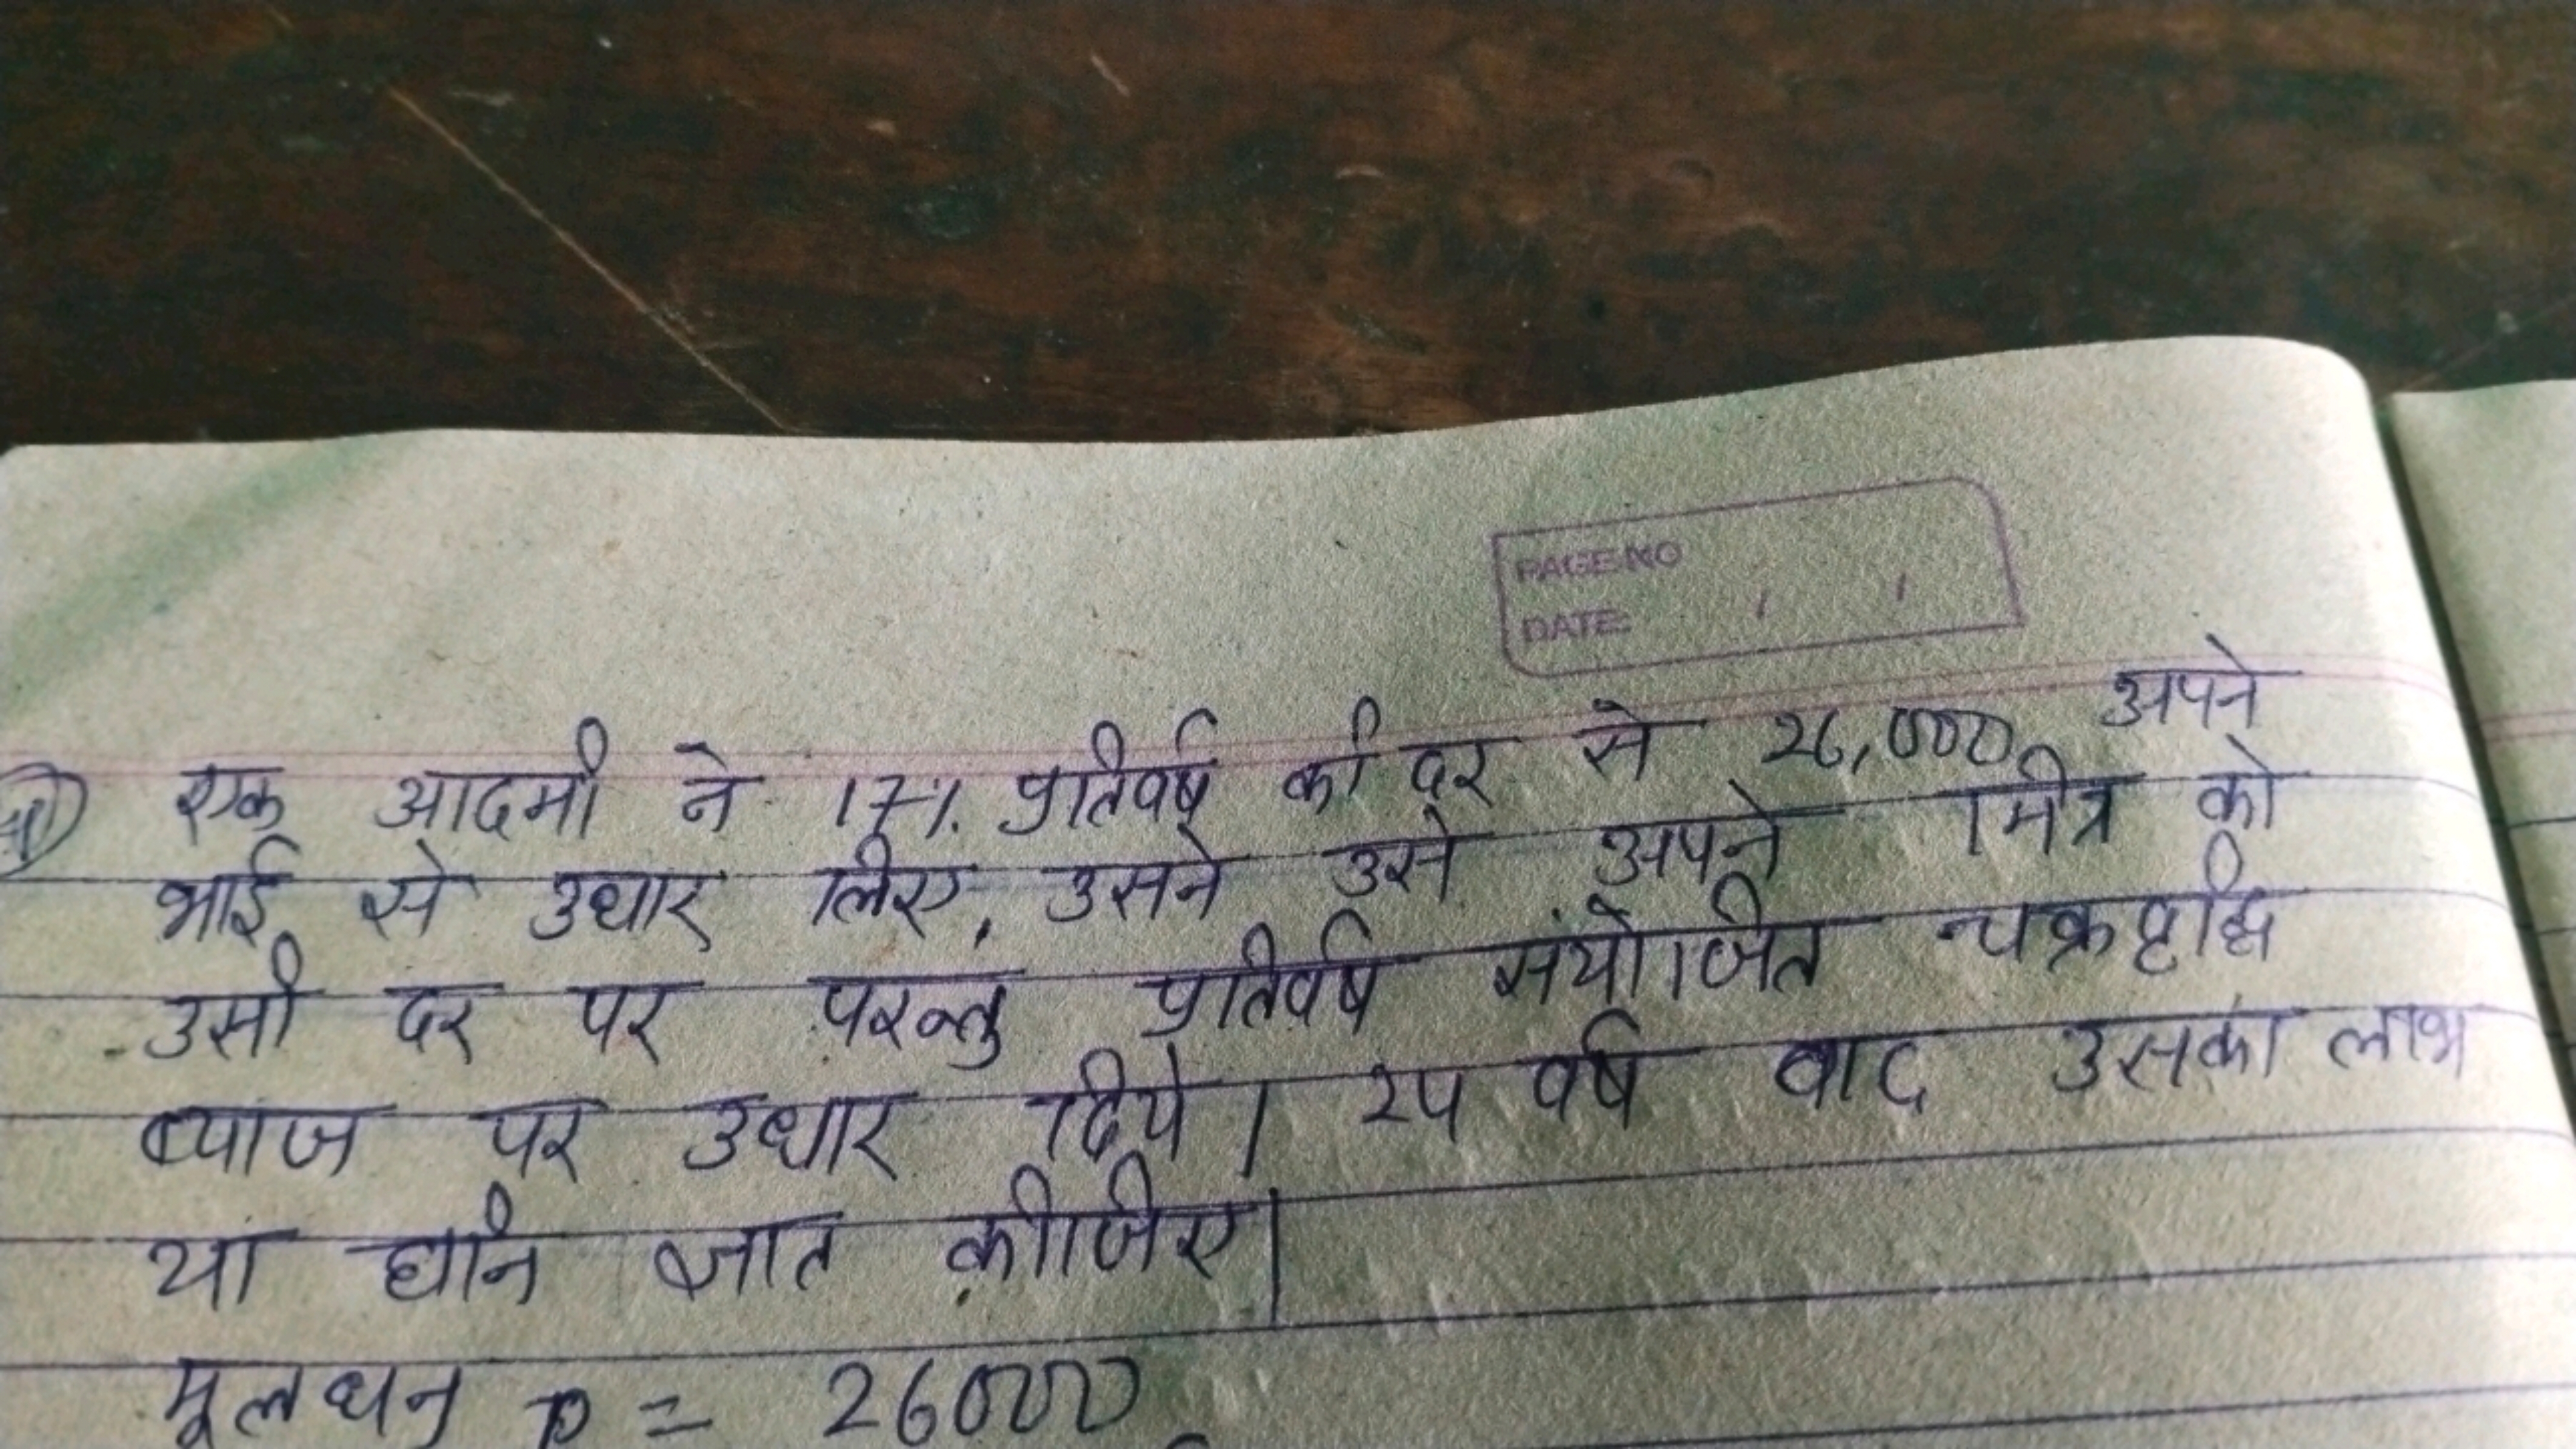 PAGE NO
DATE: / /
एक आदमी ने 17%. प्रतिवर्ष की दर से 26,000 अपने
भाई से उधार लिए, उसने उसे अपने मित्र को
उसी दर पर परन्तु प्रतिवर्ष संयोजित चक्रवृद्धि
ब्याज पर उधार दिये। 24 वर्ष बाद उसका लाभ
या हानि ज्ञात कीजिए।
मूलधन P = 26000